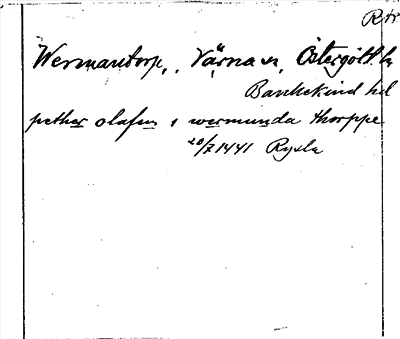 Rtr
Wermantorp, Värna sn, Östergötl. ln
Bankekind hd
pether olafsn i wermunda thorppe
20/7 1441 Rysla